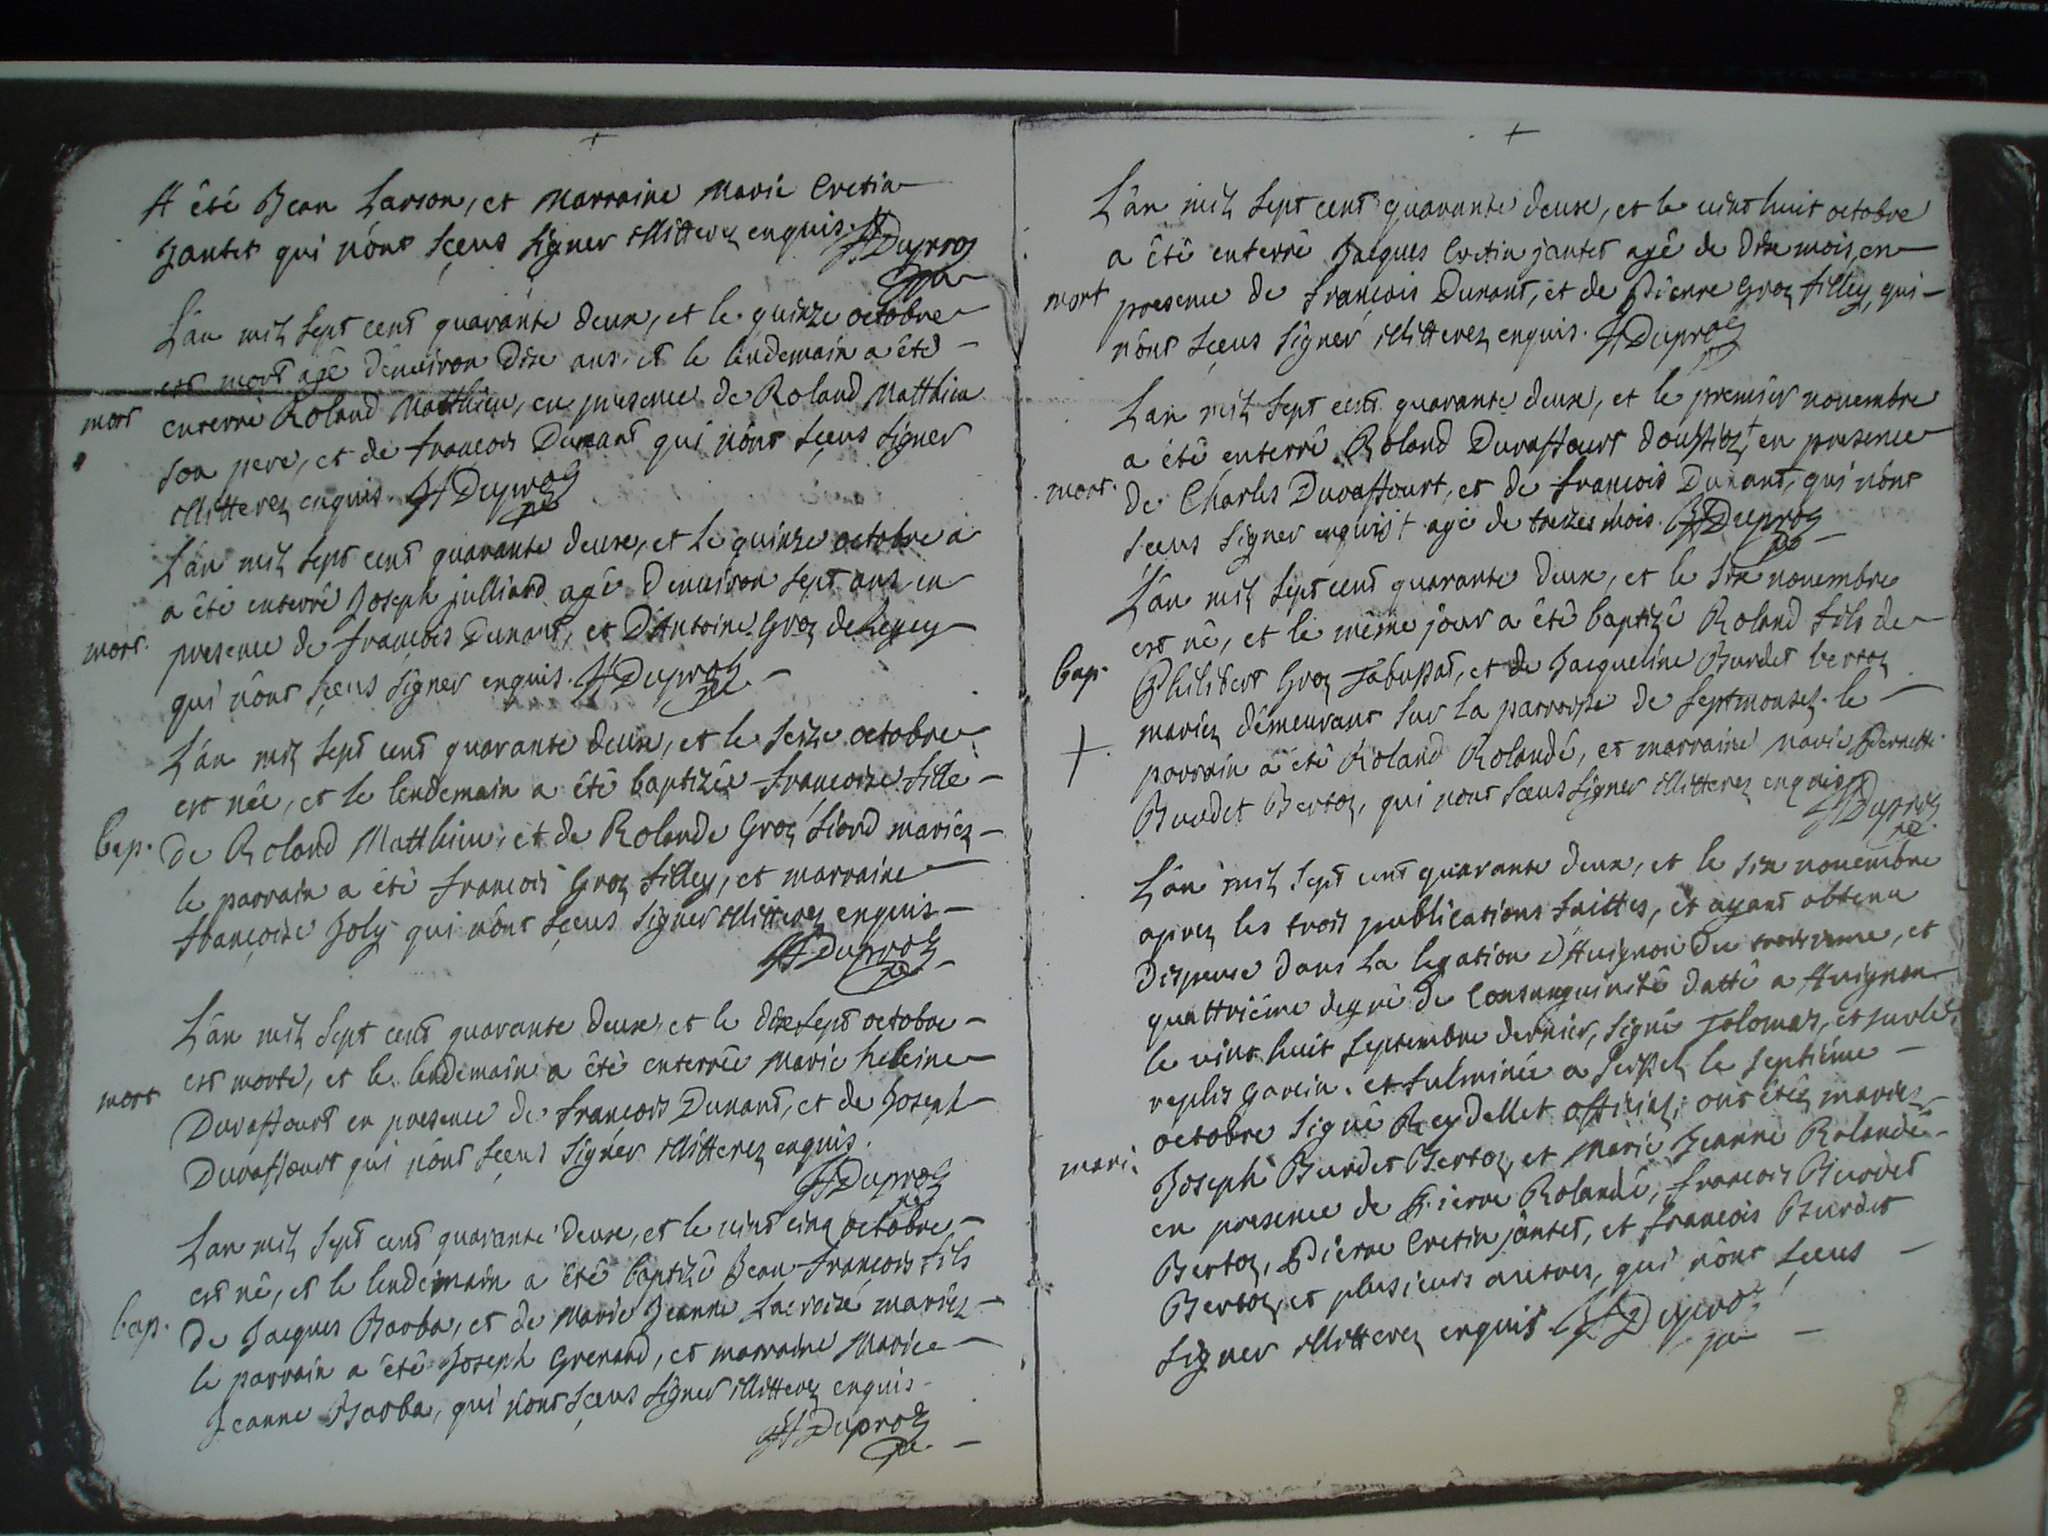 +
A été Jean Larson, et Marraine Marie Cretin
Jantet qui n'ont sçeus signer illitterez enquis. Duproz
L'an mil sept cent quarante deux, et le quinze octobre
est mort agé d'enuiron dix ans, et le lendemain a été
mort
enterré Roland Matthieu, en presence de Roland Matthieu
son pere, et de françois Dunant qui n'ont sçeus signer
illitterez enquis. Duproz
L'an mil sept cent quarante deux, et le quinze octobre a
a été enterré Joseph julliard agé d'enuiron sept ans en
mort.
presence de françois Dunant, et d'Antoine Groz
qui n'ont sçeus signer enquis. Duproz
L'an mil sept cent quarante deux, et le seize octobre
est née, et le lendemain a été baptizée françoise fille
bap.
de Roland Matthieu, et de Rolande Groz siord mariez
le parrain a été françois Groz filley, et marraine
françoise Joly qui n'ont sçeus signer illitterez enquis
Duproz
L'an mil sept cent quarante deux, et le dixsept octobre
est morte, et le lendemain a été enterrée Marie heleine
mort
Duraffourt en presence de françois Dunant, et de Joseph
Duraffourt qui n'ont sçeus signer illitterez enquis.
Duproz
L'an mil sept cent quarante deux, et le uint cinq octobre
est né, et le lendemain a été baptizé Jean françois fils
bap.
de Jacques Barba, et de Marie Jeanne Lacroixe mariez
le parrain a été Joseph Grenard, et marraine Marie
Jeanne Barba, qui n'ont sçeus signer illitterez enquis
Duproz
+
L'an mil sept cent quarante deux, et le uint huit octobre
a été enterré Jacques Cretin jantet agé de dix mois, en
mort
presence de françois Dunant, et de Pierre Groz filley, qui
n'ont sçeus signer illitterez enquis. Duproz
L'an mil sept cent quarante deux, et le premier novembre
a été enterré Roland Duraffourt + en presence
mort.
de Charles Duraffourt, et de françois Dunant, qui n'ont
sceus signer enquis + agé de treizes mois. Duproz
L'an mil sept cent quarante deux, et le six nouembre
est né, et le même jour a été baptizé Roland fils de
bap.
Philibert Groz Tabussat, et de Jacqueline Burdet bertoz
mariez démeurant sur la parroisse de Septmoncel. le
+
parrain a été Roland Rolandé, et marraine marie Pernette
Burdet Bertoz, qui n'ont sceus signer illitterez enquis
Duproz
L'an mil sept cent quarante deux, et le six nouembre
aprez les trois publications faittes, et ayant obtenu
dispense dans la legation d'Auignon du troisieme, et
quattriéme degré de Consanguinité datté a Auignon
le vint huit septembre dernier, signé et sur le
replis et fulminée a le septiéme
octobre signé Reydellet official, ont étéz mariez
mari.
Joseph Burdet Bertoz, et Marie Jeanne Rolandé
en presence de Pierre Rolandé, françois Burdet
Bertoz, Pierre Cretin jantet, et françois Burdet
Bertoz, et plusieurs autres, qui n'ont sceus
signer illitterez enquis Duproz